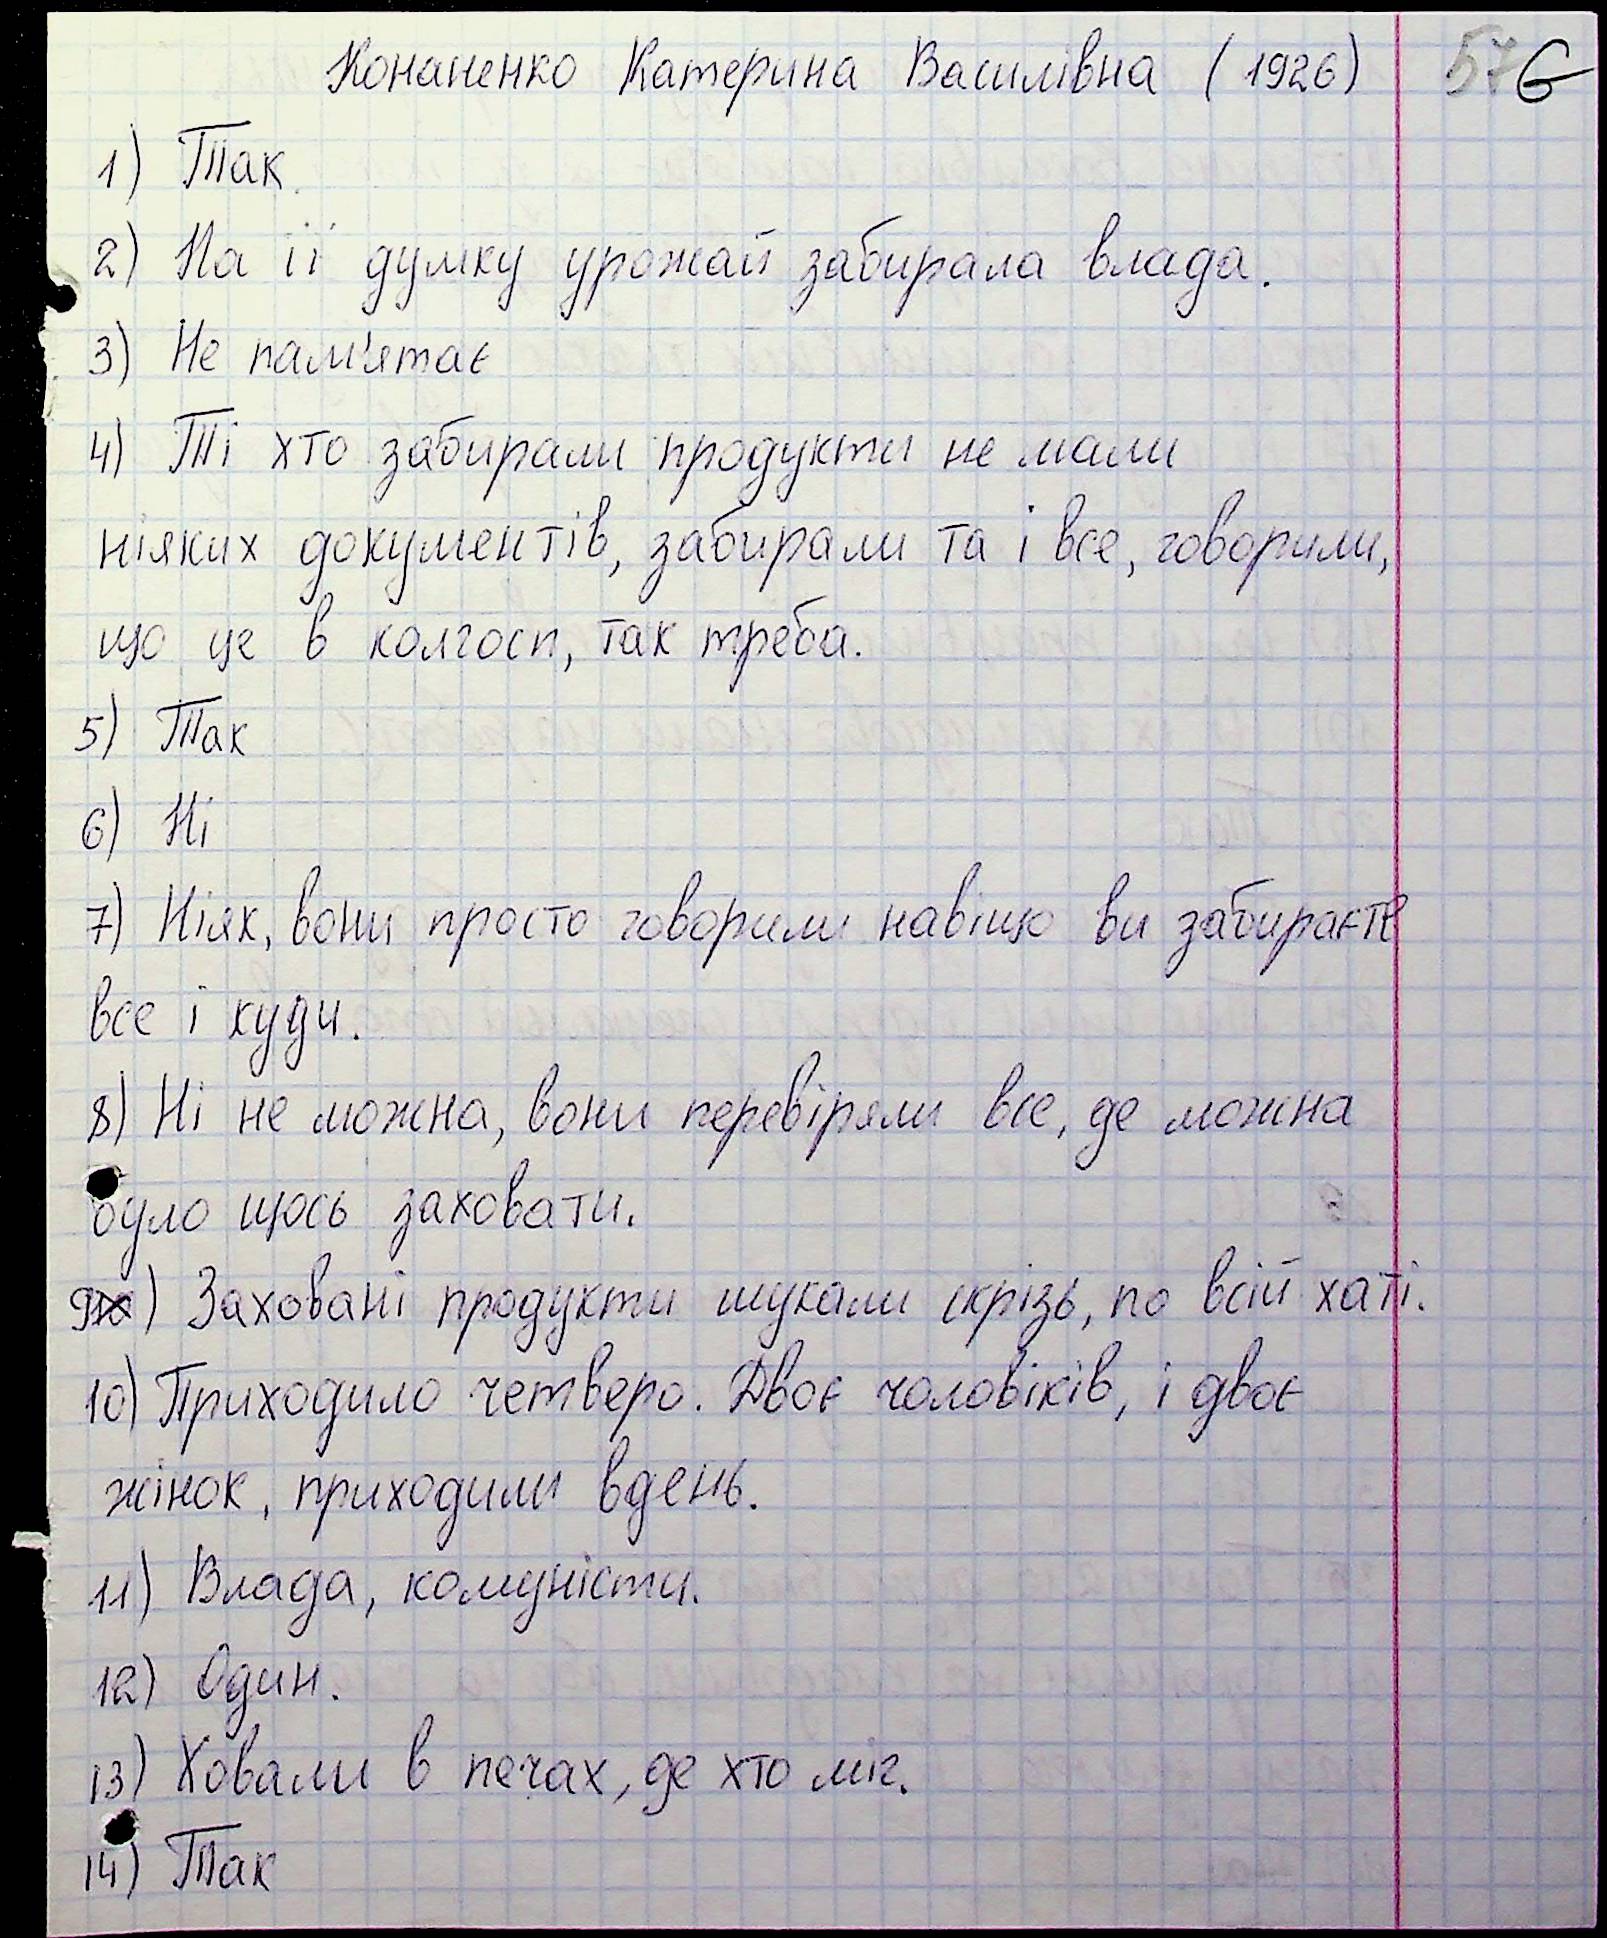 Конаненко Катерина Василівна (1926) 57 6
1) Так.
2) На її думку урожай забирала влада.
3) Не пам'ятає
4) Ті хто забирали продукти не мали
ніяких документів, забирали та і все, говорили,
що це в колгосп, так треба.
5) Так
6) Ні
7) Ніяк, вони просто говорили навіщо ви забираєте
все і куди.
8) Ні не можна, вони перевіряли все, де можна
було щось заховати.
9) Заховані продукти шукали скрізь, по всій хаті.
10) Приходило четверо. Двоє чоловіків, і двоє
жінок, приходили вдень.
11) Влада, комуністи.
12) Один.
13) Ховали в печах, де хто міг.
14) Так